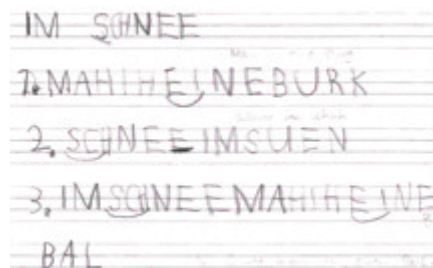 IM SCHNEE
1. MAHIHEINEBURK
2. SCHNEEIMSUEN
3. IMSCHNEEMAHIHEINE
BAL